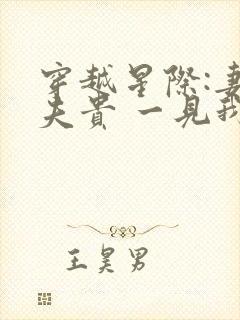 穿越星際:妻
夫貴 一見我
王昊男